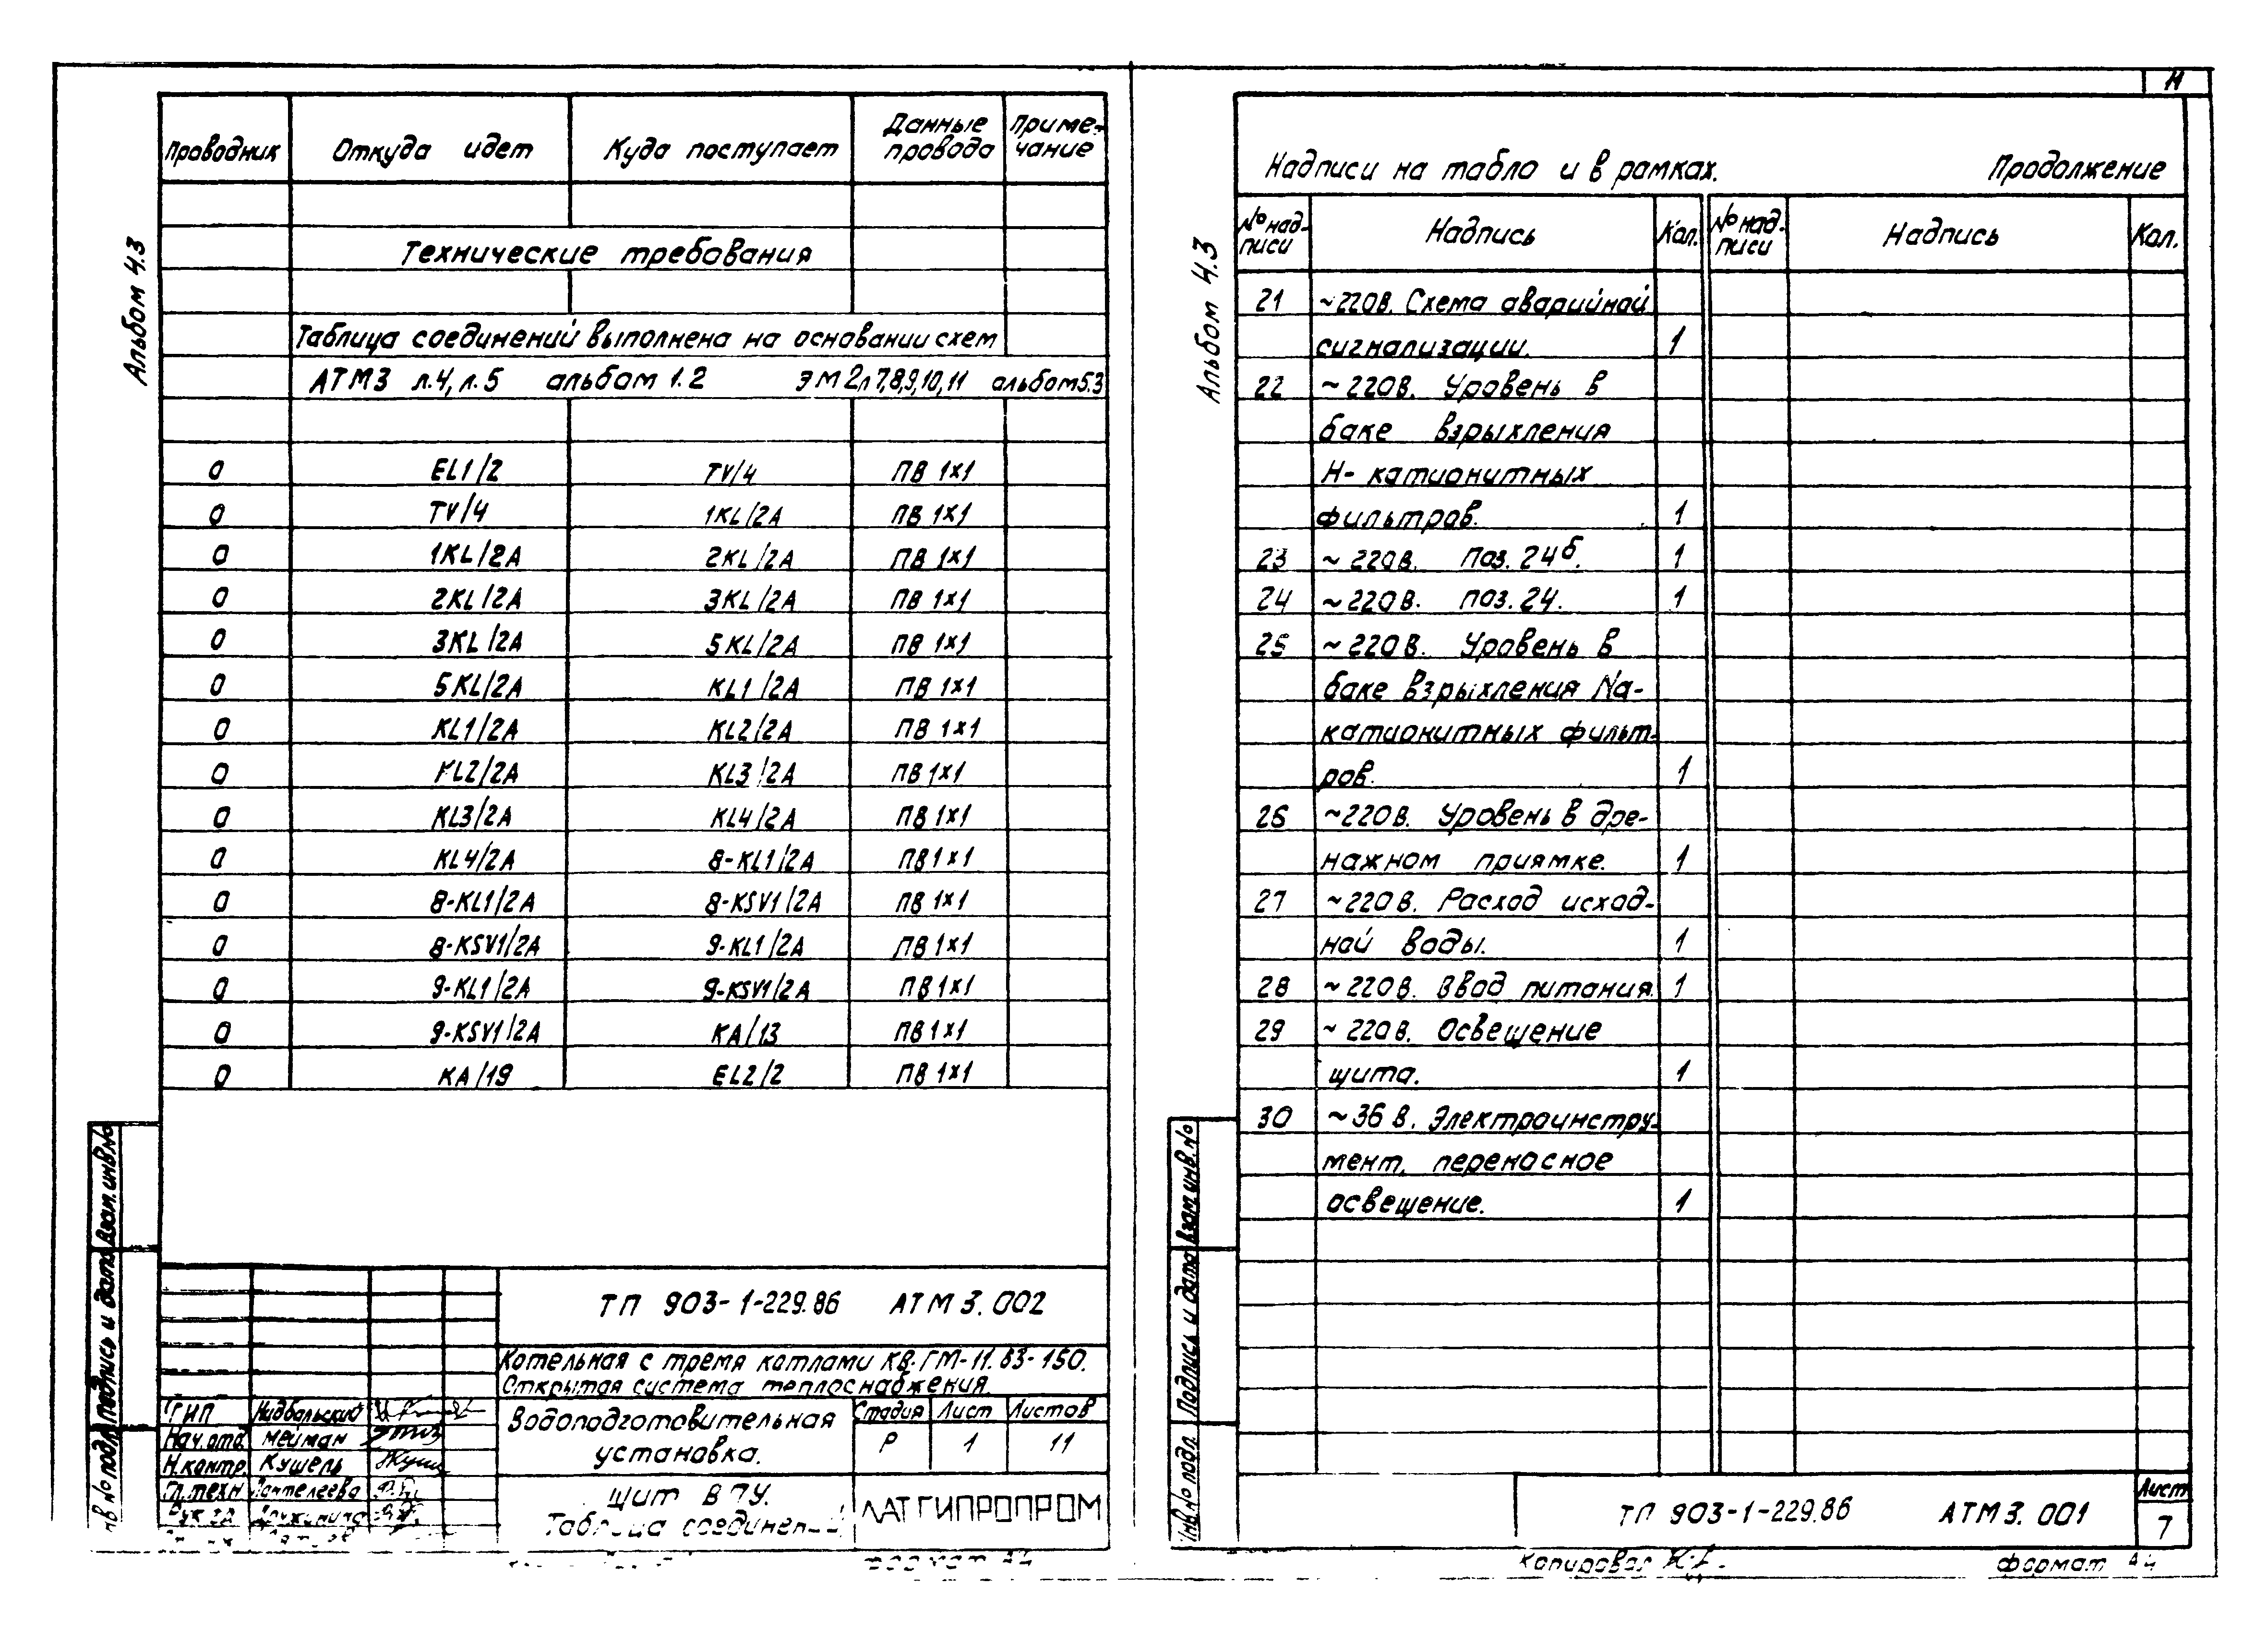 Альбом 4.3
Проводник Откуда идет Куда поступает Данные провода Приме-чание
Технические требования
Таблица соединений выполнена на основании схем
АТМ3 л.4, л.5 альбом 1.2 ЭМ2 л7,8,9,10,11 альбом5.3
0 EL1/2 TV/4 ПВ 1×1
0 TV/4 1KL/2A ПВ 1×1
0 1KL/2A 2KL/2A ПВ 1×1
0 2KL/2A 3KL/2A ПВ 1×1
0 3KL/2A 5KL/2A ПВ 1×1
0 5KL/2A KL1/2A ПВ 1×1
0 KL1/2A KL2/2A ПВ 1×1
0 KL2/2A KL3/2A ПВ 1×1
0 KL3/2A KL4/2A ПВ 1×1
0 KL4/2A 8-KL1/2A ПВ 1×1
0 8-KL1/2A 8-KSV1/2A ПВ 1×1
0 8-KSV1/2A 9-KL1/2A ПВ 1×1
0 9-KL1/2A 9-KSV1/2A ПВ 1×1
0 9-KSV1/2A KA/13 ПВ 1×1
0 KA/19 EL2/2 ПВ 1×1
Взам. инв. №
Подпись и дата
инв № подл
ТП 903-1-229.86 АТМ 3. 002
Котельная с тремя котлами КВ-ГМ-11.63-150.
Открытая система теплоснабжения.
ГИП
Нач. отд. Мейман
Н. контр. Кушель
Гл. техн Пантелеева
Рук. гр.
Водоподготовительная
установка.
Стадия Лист Листов
Р 1 11
Щит ВПУ.
Таблица соединений
ЛАТГИПРОПРОМ
формат А4
Альбом 4.3
Надписи на табло и в рамках. Продолжение
№ над-писи Надпись Кол. № над-писи Надпись Кол.
21 ~220в. Схема аварийной
сигнализации. 1
22 ~220в. Уровень в
баке взрыхления
Н- катионитных
фильтров. 1
23 ~220в. Поз. 24б. 1
24 ~220в. Поз. 24. 1
25 ~220в. Уровень в
баке взрыхления Na-
катионитных фильт-
ров. 1
26 ~220в. Уровень в дре-
нажном приямке. 1
27 ~220в. Расход исход-
ной воды. 1
28 ~220в. Ввод питания. 1
29 ~220в. Освещение
щита. 1
30 ~36 в. Электроинстру-
мент, переносное
освещение. 1
Взам. инв. №
Подпись и дата
Инв. № подл
ТП 903-1-229.86 АТМ 3. 001
Лист
7
Копировал
формат А4